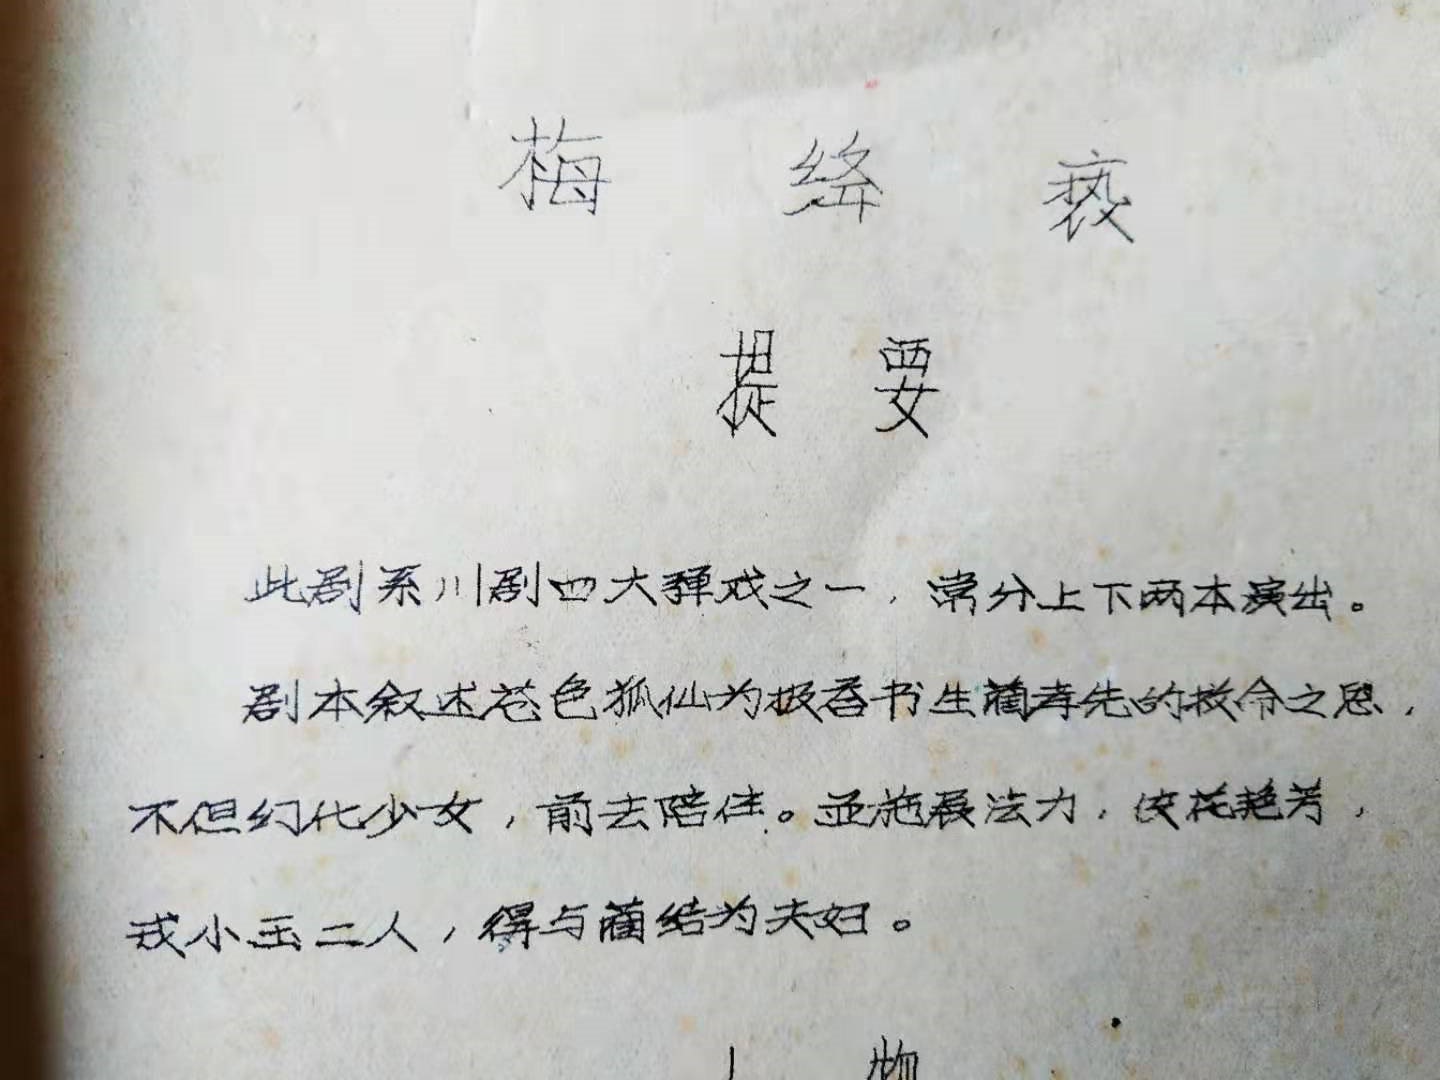 梅绛亵
提要
此剧系川剧四大弹戏之一，常分上下两本演出。
剧本叙述苍色狐仙为报答书生蔺孝先的救命之恩，
不但幻化少女，前去陪住。並施展法力，使花艳芳，
戎小玉二人，得与蔺结为夫妇。
人物